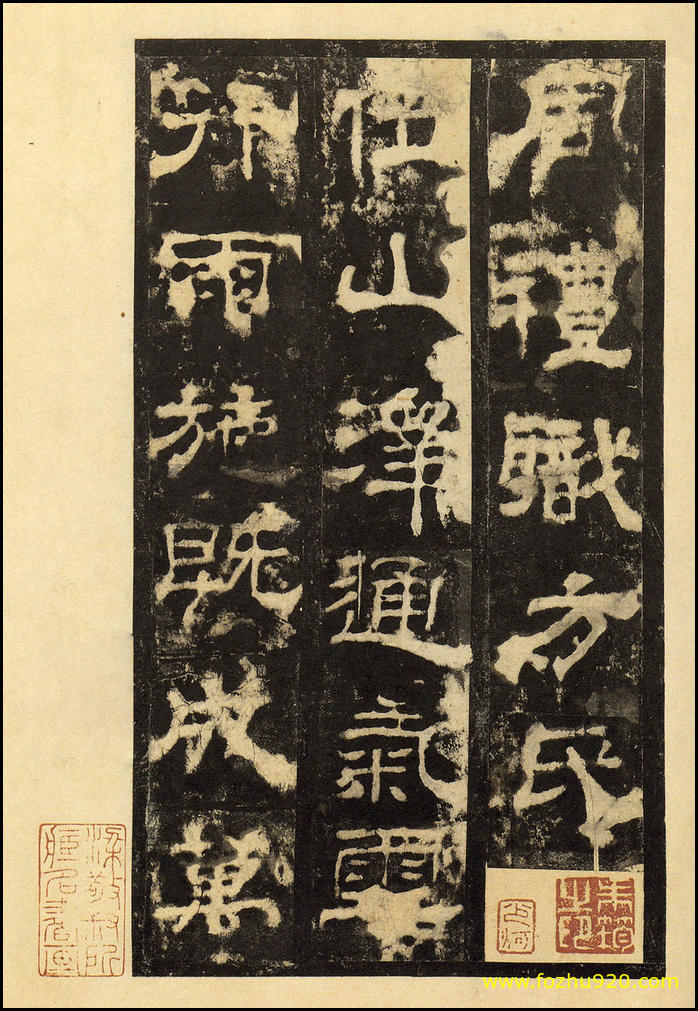 周禮職方氏
位山澤通氣雲
行雨施既成萬
www.fozhu920.com